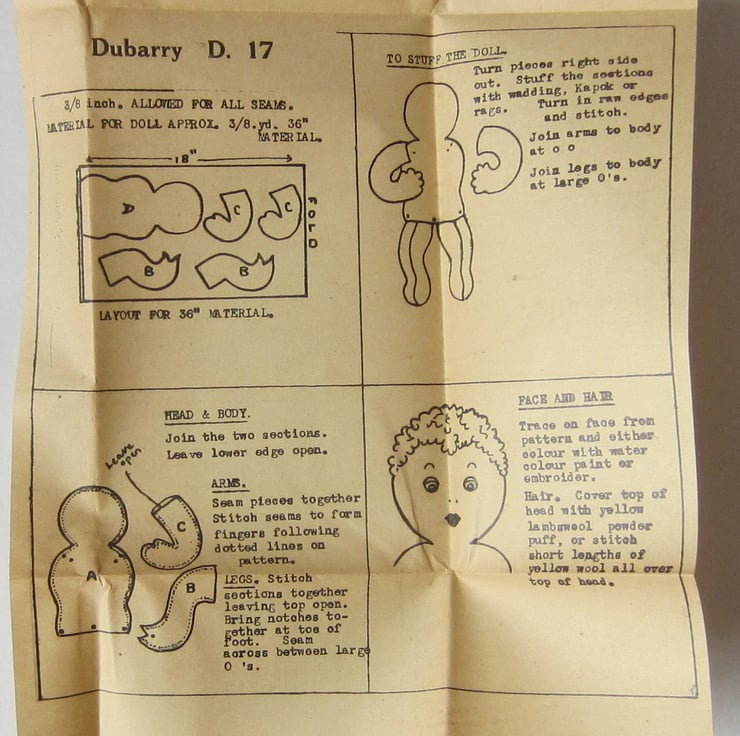 Dubarry D. 17
3/8 inch. ALLOWED FOR ALL SEAMS.
MATERIAL FOR DOLL APPROX. 3/8.yd. 36"
MATERIAL.
18"
A
C
C
B
B
FOLD
LAYOUT FOR 36" MATERIAL.
TO STUFF THE DOLL.
Turn pieces right side
out. Stuff the sections
with wadding, Kapok or
rags. Turn in raw edges
and stitch.
Join arms to body
at o o
Join legs to body
at large O's.
HEAD & BODY.
Join the two sections.
Leave lower edge open.
Leave
open
ARMS.
Seam pieces together
Stitch seams to form
fingers following
dotted lines on
pattern.
A
C
B
LEGS. Stitch
sections together
leaving top open.
Bring notches to-
gether at toe of
foot. Seam
across between large
O 's.
FACE AND HAIR
Trace on face from
pattern and either
colour with water
colour paint or
embroider.
Hair. Cover top of
head with yellow
lambswool powder
puff, or stitch
short lengths of
yellow wool all over
top of head.